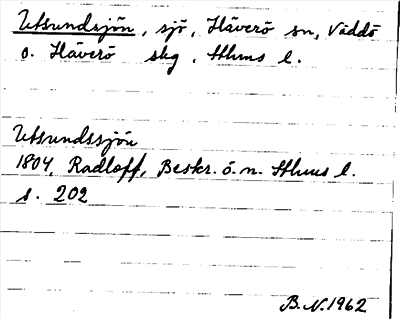 Utsundsjön, sjö, Häverö sn, Väddö
o. Häverö skg. Sthms l.
Utsundssjön
1804, Radloff, Beskr. ö. n. Sthms l.
s. 202
B.N. 1962